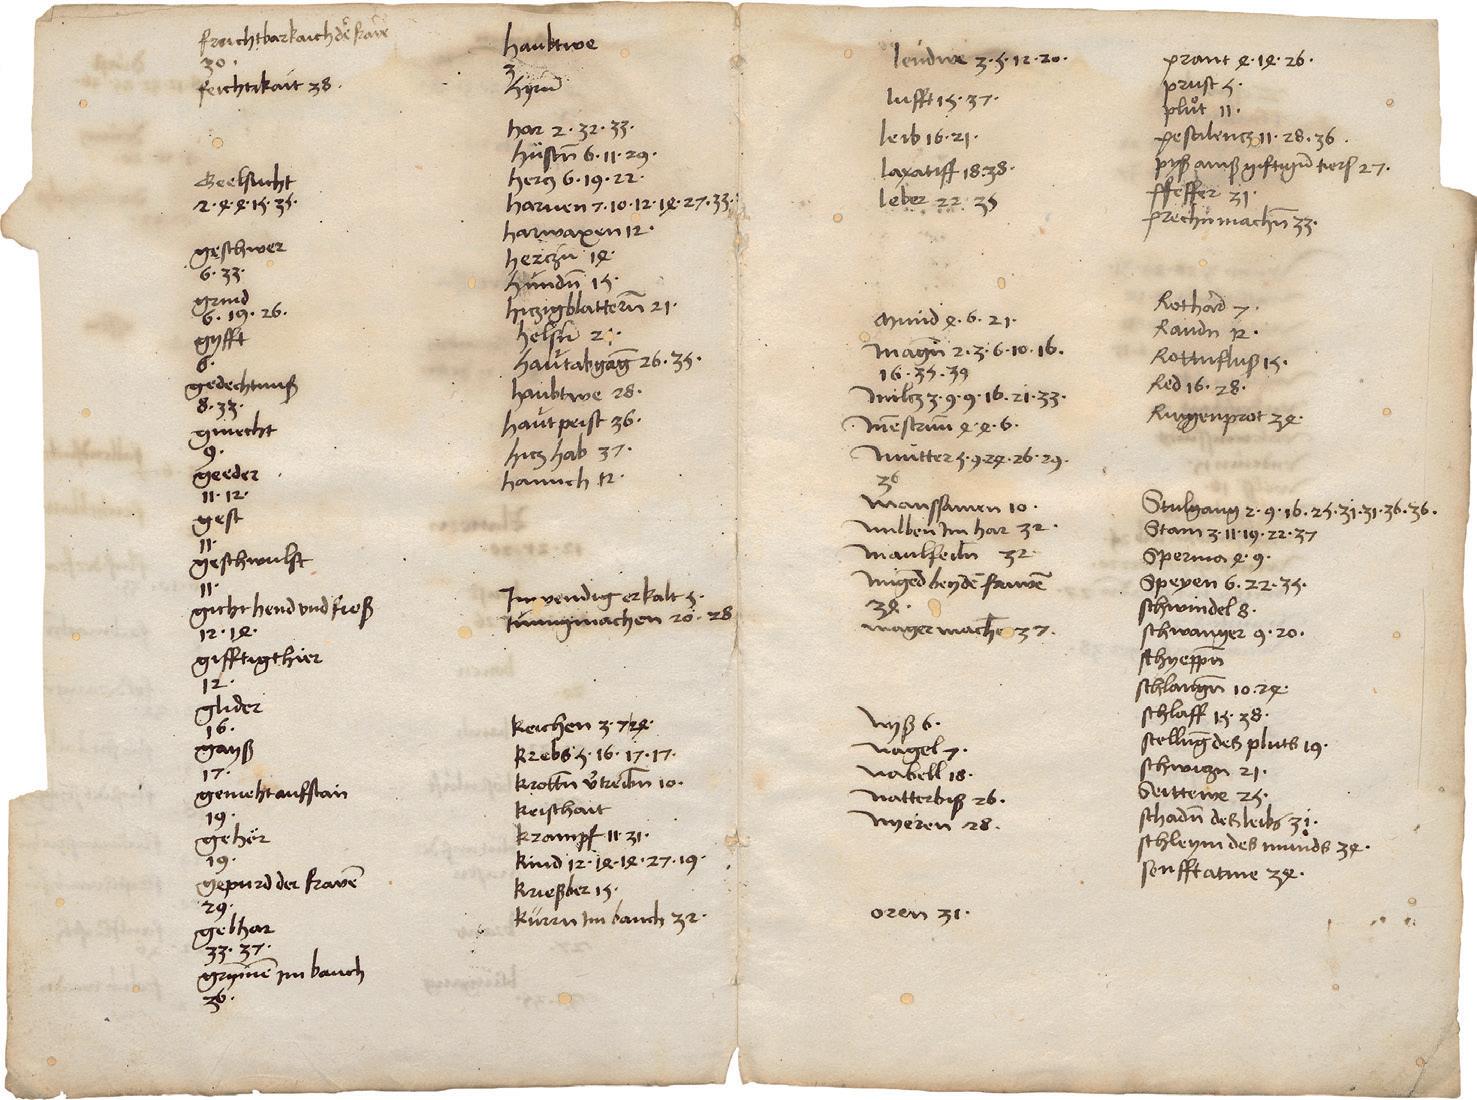 fruchtbarkaich der frawē
30.
feichtikait 38.
Geelsucht
2. 4. 4. 15. 35.
geschwer
6. 33.
grind
6. 19. 26.
gyfft
8.
gedechtnuß
8. 33.
gmecht
9.
geeder
11. 12.
gest
11.
geschwulst
11.
gicht hend vnd fieß
12. 14.
gifftig thier
12.
glider
16.
gayß
17.
gemeht aufstan
19.
gehör
19.
gepurd der frawē
29.
gelhar
33. 37.
grymē im bauch
36.
haubtwe
3
hyrn
har 2. 32. 33.
hüstn̄ 6. 11. 29.
hercz 6. 19. 22.
harnen 7. 10. 12. 14. 27. 33.
harwaxen 12.
herczn 14.
hundn̄ 15.
hiczigblattern̄ 21.
helsn 2
hautabgāg 26. 35.
haubtwe 28.
hautpeist 36.
hicz hab 37.
hannch 12.
Inwendig erkalt 5.
Iunngmachen 20. 28
Keichen 3. 7 24.
Krebs 5. 16. 17. 17.
Krottn̄ v̄treibn̄ 10.
Keischait
Krampf 11. 31.
Kind 12. 14. 14. 27. 19.
Krießber 15.
Kürrn im bauch 32.
lendwe 3. 5. 12. 20.
lufft 15. 37.
leib 16. 21.
laxatiff 18. 38.
leber 22. 35
Mund 4. 6. 21.
Magn̄ 2. 3. 6. 10. 16.
16. 35. 39
Milcz 3. 9. 9. 16. 21. 33.
Mēstruū 4. 4. 6.
Mutter 5. 9. 24. 26. 29.
36
Manssamen 10.
Milben Im har 32.
Maulfeiln̄ 32.
Miged bey dē frawē
34.
Mager machē 37.
Nyß 6.
Nagel 7.
Nabell 18.
Natterbiß 26.
Nyeren 28.
Oren 31.
prant 4. 14. 26.
prust 5.
plůt 11.
pestalencz 11. 28. 36.
pyß ainß giftign̄ tierß 27.
Pfeffer 31.
prechn̄ machn̄ 33.
Rothard 7.
Raudn 12.
Rottnfluß 15.
Red 16. 28.
Ruggenprot 34.
Stulgang 2. 9. 16. 25. 31. 31. 36. 36.
Stain 3. 11. 19. 22. 37
Sperma 4. 9.
Speyen 6. 22. 35.
schwindel 8.
schwanger 9. 20.
schyeppn̄
schlangn̄ 10. 24.
schlaff 15. 38.
stellūg des pluts 19.
schwiczn 21.
Seittewe 25.
schadn̄ des leibs 31.
schleym des munds 34.
senfft atme 34.